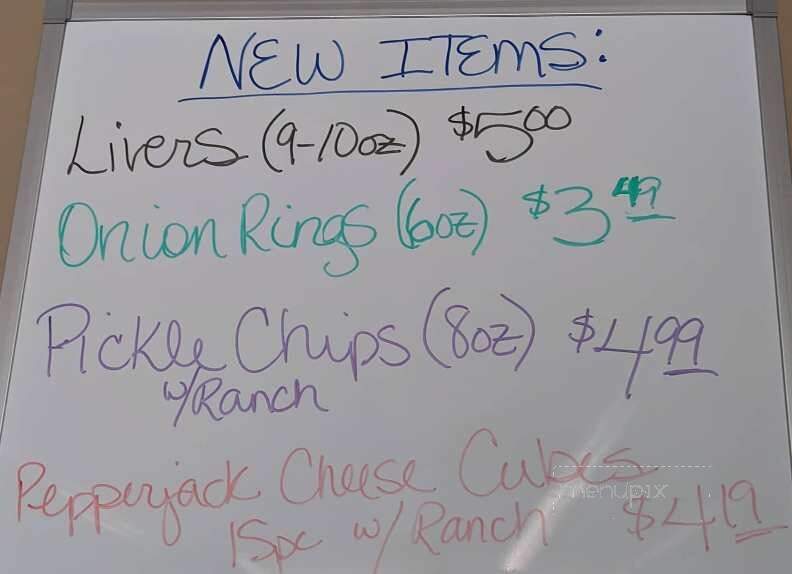 NEW ITEMS:
Livers (9-10oz) $5.00
Onion Rings (6oz) $3 49
Pickle Chips (8oz) $4 99
w/Ranch
Pepperjack Cheese Cubes
menupix
15pc w/ Ranch $4 19